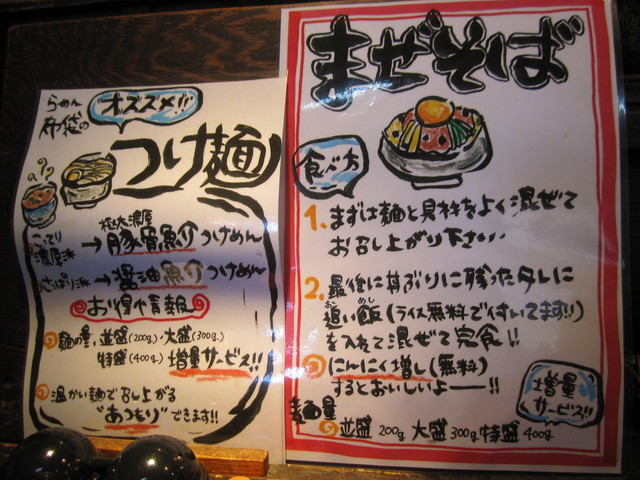 らーめん
布袋の
オススメ!!
つけ麺
こってり
濃厚派
→
極太濃厚
豚骨魚介つけめん
さっぱり派→醤油魚介つけめん
お得情報
麺の量、並盛(200g)・大盛(300g)
特盛(400g) 増量サービス!!
温かい麺で召し上がる
"あつもり"できます!!
まぜそば
食べ方
1. まずは麺と具材をよく混ぜて
お召し上がり下さい。
2. 最後に丼ぶりに残ったタレに
追い飯(ライス無料で付いてます!!)
おめし
を入れて混ぜて完食!!
にんにく増し(無料)
するとおいしいよーー!!
増量
サービス!!
麺量
並盛 200g 大盛 300g 特盛 400g